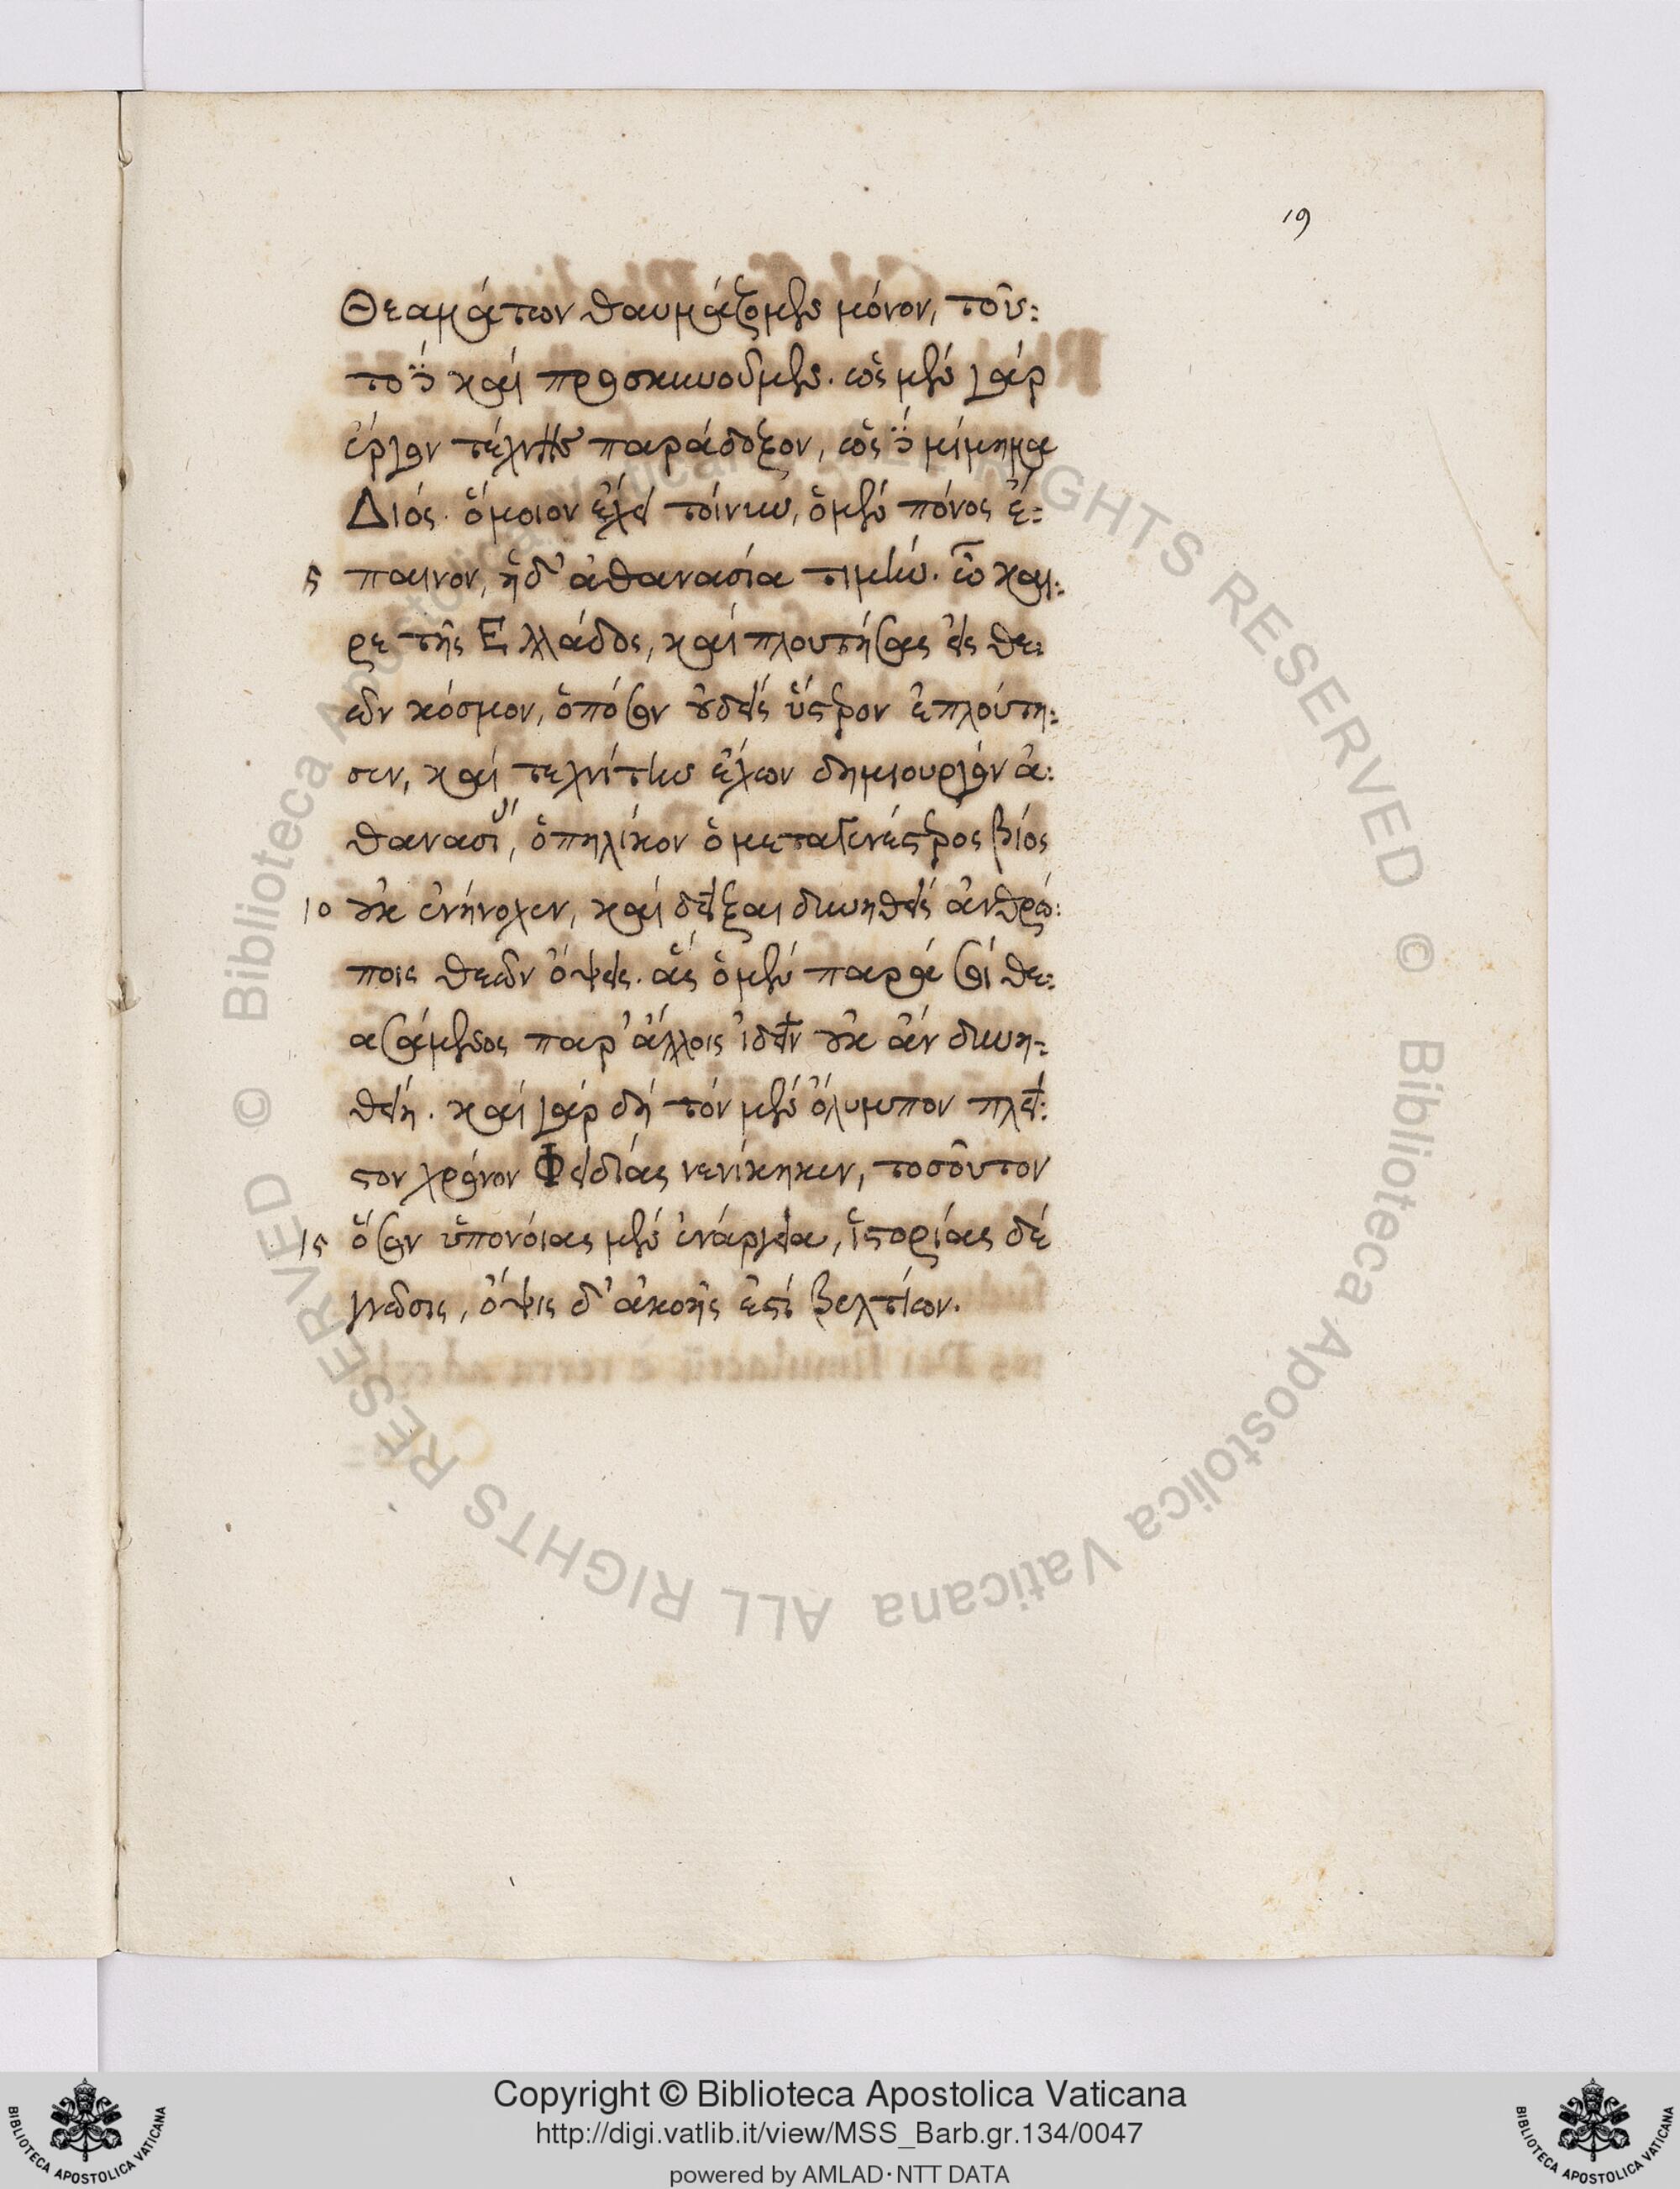 19
Θεαμάτων θαυμάζομεν μόνον, τοῦ:
το δὲ καὶ προσκυνοῦμεν. ὡς μὲν γάρ
ἔργον τέχνης παράδοξον, ὡς δὲ μίμημα
Διός. ὅμοιον ἔχει τοίνυν, ὁ μὲν πόνος ἔ:
5 παινον, ἡ δ' ἀθανασία τιμήν. ὦ και:
ρε τῆς Ἑλλάδος, καὶ πλουτήσας εἰς θε:
ῶν κόσμον, ὁπόσον οὐδεὶς ὕστερον ἐπλούτη:
σεν, καὶ τεχνίτην ἔχων δημιουργὸν ἀ:
θανασίας, ὁπηλίκον ὁ μεταγενέστερος βίος
10 οὐκ ἐνήνοχεν, καὶ δεῖξαι δυνηθεὶς ἀνθρώ:
ποις θεῶν ὄψεις. ἃς ὁ μὲν παρά σοι θε:
ασάμενος παρ' ἄλλοις ἰδεῖν οὐκ ἂν δυνη:
θείη. καὶ γὰρ δὴ τὸν μὲν ὄλυμπον πλεῖ:
στον χρόνον Φειδίας νενίκηκεν, τοσοῦτον
15 ὅσον ὑπονοίας μὲν ἐνάργεια, ἱστορίας δέ
γνῶσις, ὄψις δ' ἀκοῆς ἐστί βελτίων.
Copyright © Biblioteca Apostolica Vaticana
http://digi.vatlib.it/view/MSS_Barb.gr.134/0047
powered by AMLAD·NTT DATA
BIBLIOTECA APOSTOLICA VATICANA
BIBLIOTECA APOSTOLICA VATICANA
© Biblioteca Apostolica Vaticana ALL RIGHTS RESERVED © Biblioteca Apostolica Vaticana ALL RIGHTS RESERVED